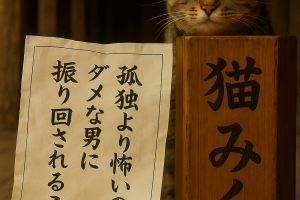 孤独より怖いの
ダメな男に
振り回される
猫みく